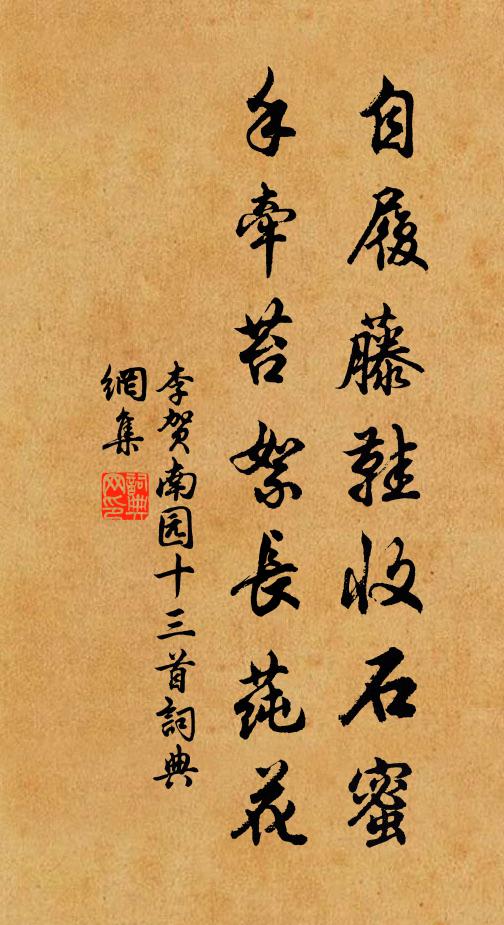 自履藤鞋收石蜜
手牽苔絮長蒓花
李贺南园十三首詞典
網集
詞典网印